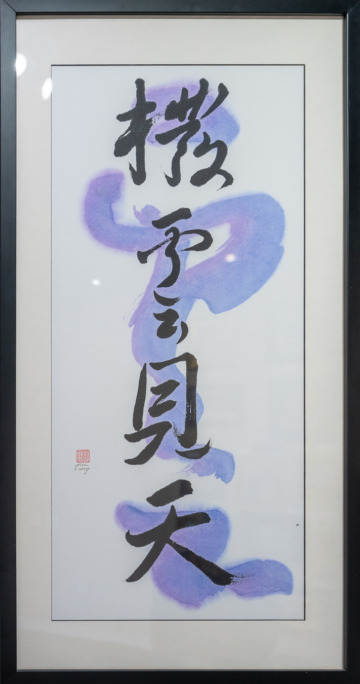 撥雲見天